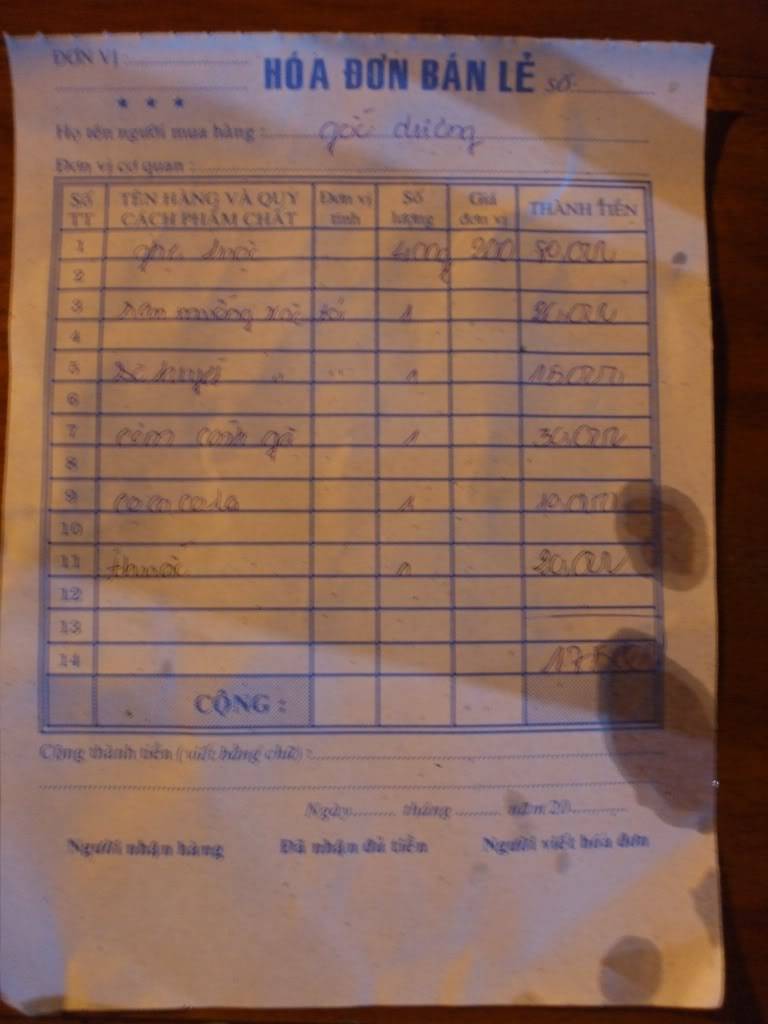 ĐƠN VỊ:
HÓA ĐƠN BÁN LẺ số
Họ tên người mua hàng : gốc đường
Đơn vị cơ quan :
Số TT TÊN HÀNG VÀ QUY CÁCH PHẨM CHẤT Đơn vị tính Số lượng Giá đơn vị THÀNH TIỀN
1 400g 200 80.000
2
3 rau muống xào tỏi 1
4
5 1 15.000
6
7 cơm gà 1 30.000
8
9 coca cola 1 10.000
10
11 thuốc 1 20.000
12
13
14
CỘNG :
Cộng thành tiền (viết bằng chữ) :
Ngày tháng năm 20
Người nhận hàng Đã nhận đủ tiền Người viết hóa đơn